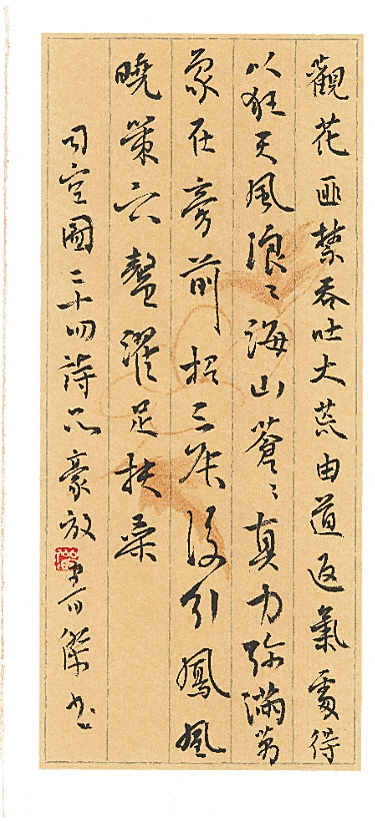 觀花匪禁吞吐大荒由道返氣處得
以狂天風浪〻海山蒼〻真力弥滿萬
象在旁前招三辰後引鳳凰
曉策六鰲濯足扶桑
司空圖二十四詩品豪放 百傑書